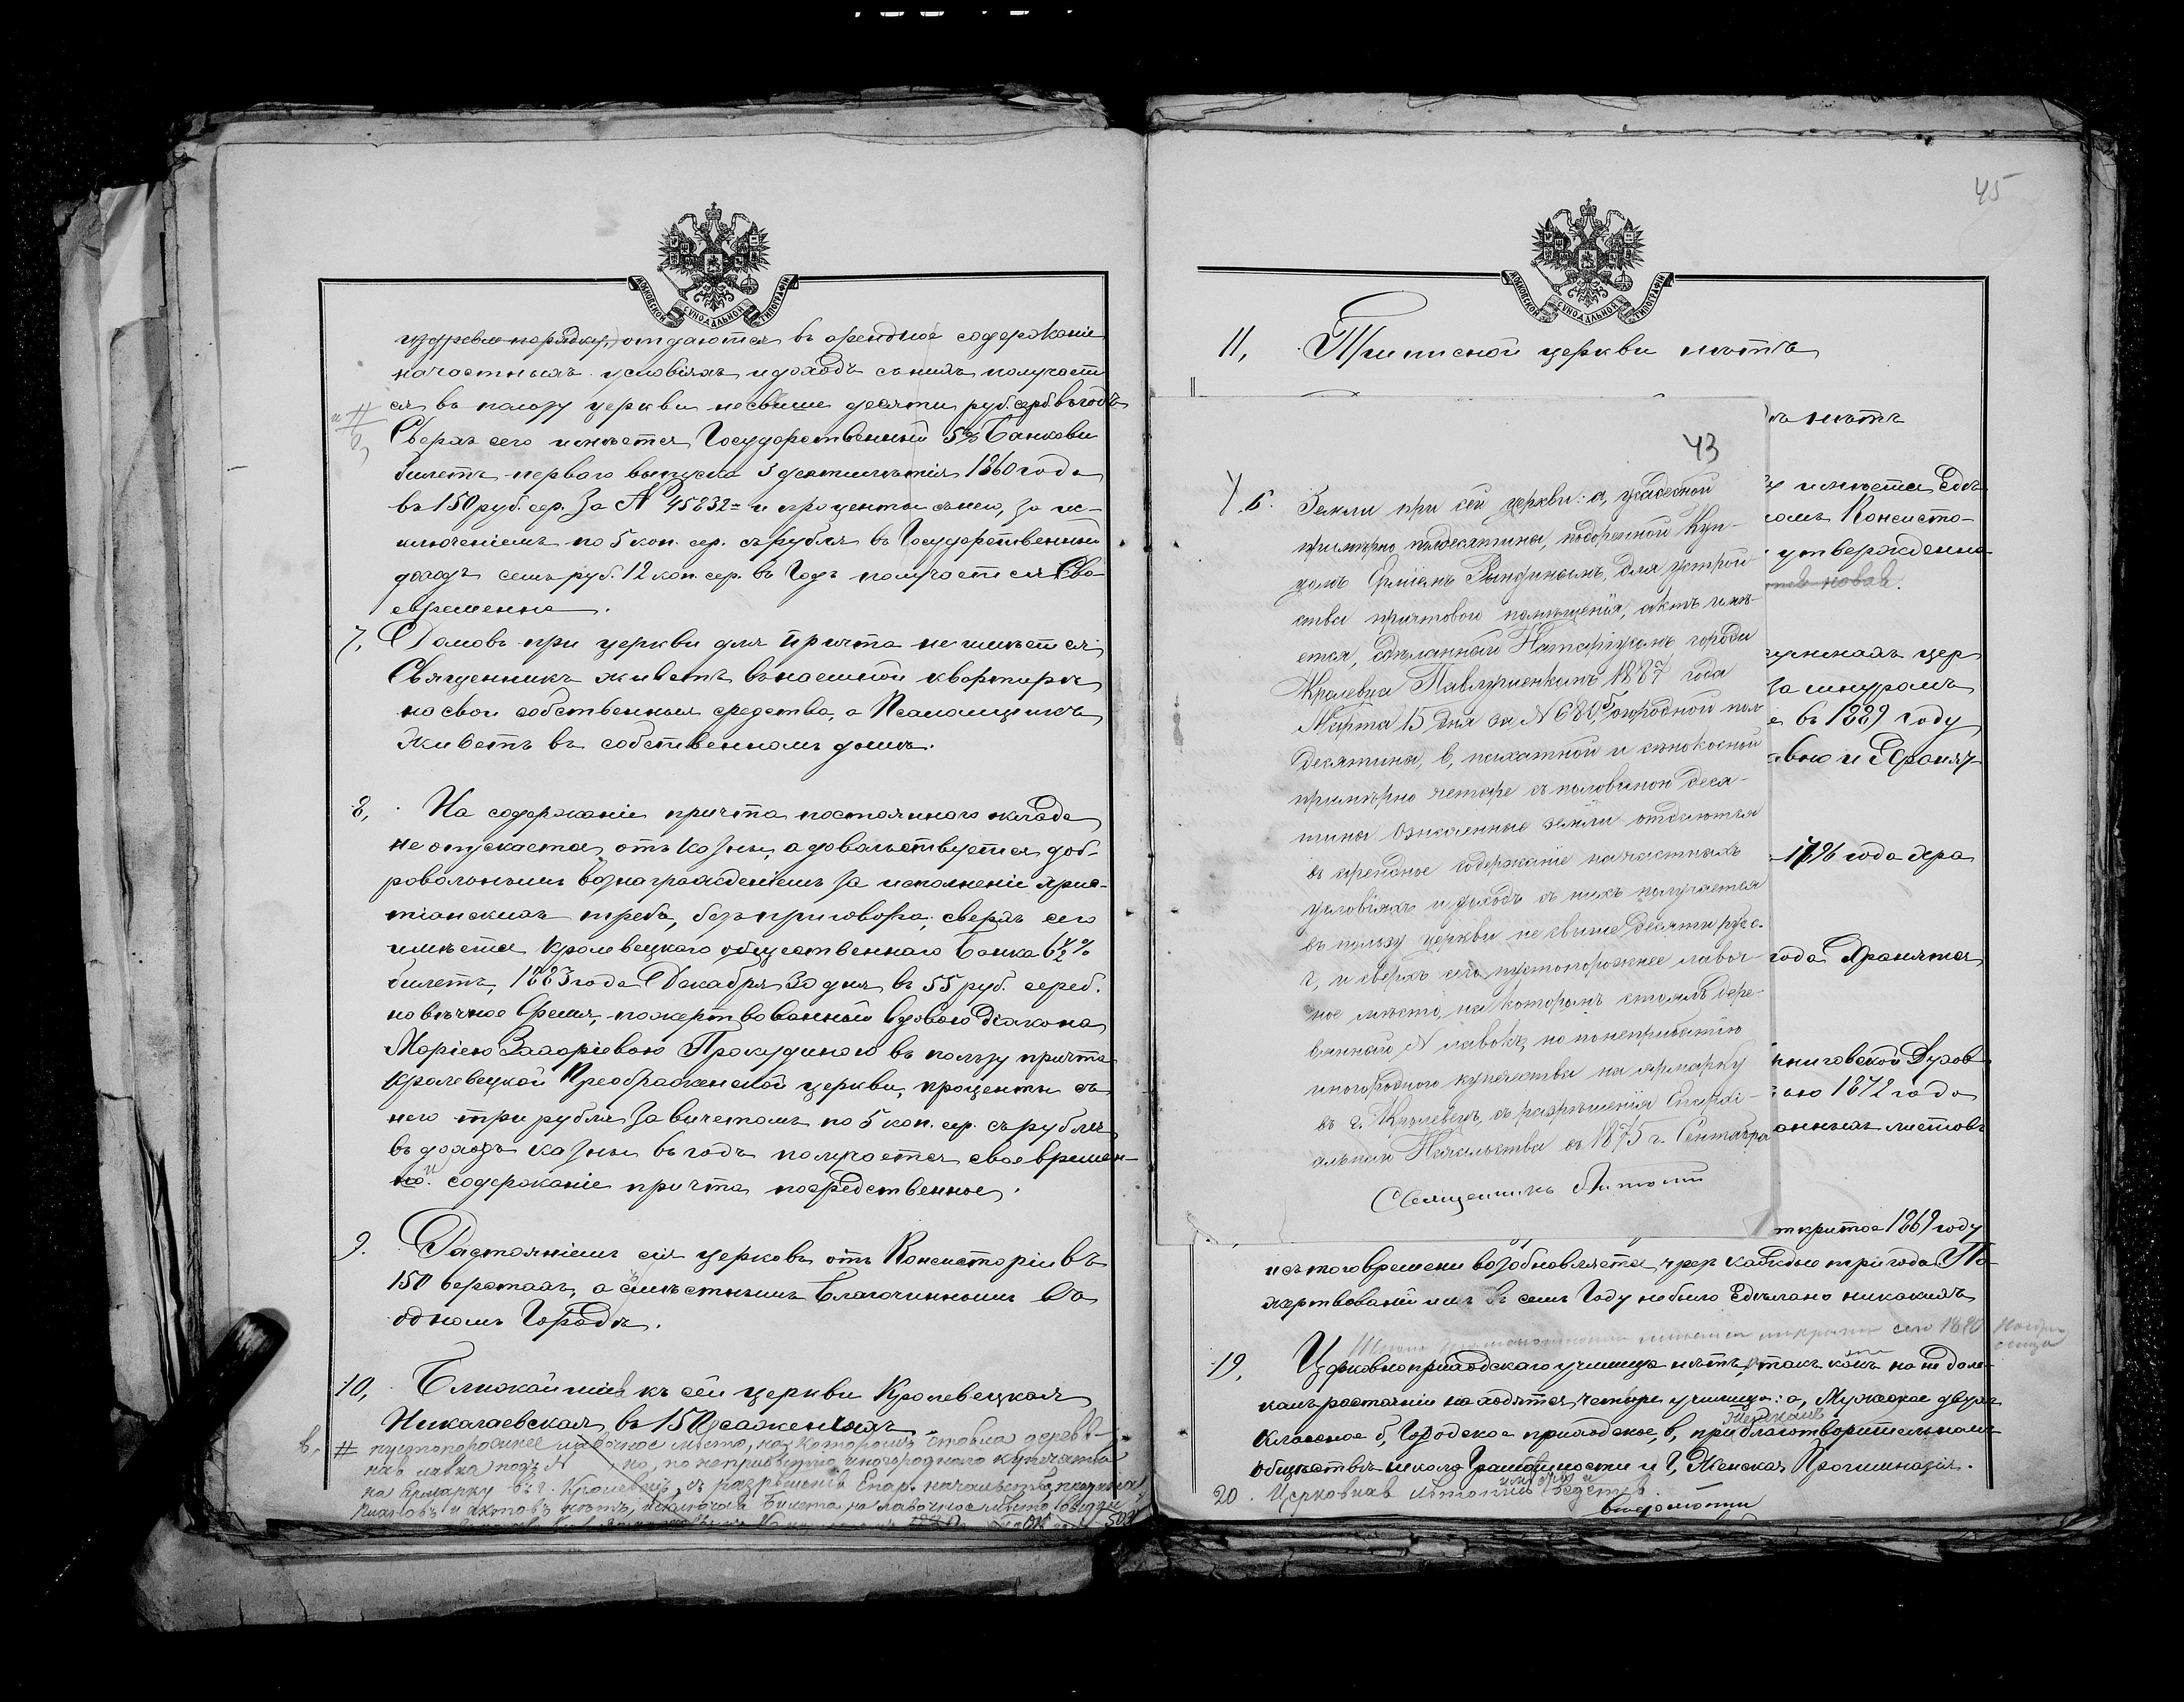 МОСКОВСКОЙ СѴНОДАЛЬНОЙ ТИПОГРАФІИ
отдаются въ арендное содержаніе
на частныхъ условіяхъ и доходъ съ нихъ получает
ся въ пользу церкви не свыше десяти руб. сер. въ годъ
Сверхъ сего имѣется Государственный 5% Банковы
билетъ перваго выпуска 3 десятилѣтія 1860 года
въ 150 руб. сер. За № 45832 и проценты съ него, за ис-
ключеніемъ по 5 коп. сер. съ рубля въ Государственный
доходъ семь руб. 12 коп. сер. въ Годъ получается Сво-
евременно.
7, Домовъ при церкви для причта не имѣется;
Священникъ живетъ въ наемной квартирѣ
на свои собственныя средства, а Псаломщикъ
живетъ въ собственномъ домѣ.
8, На содержаніе причта постояннаго оклада
не отпускается отъ казны, а довольствуется доб-
ровольнымъ вознагражденіемъ за исполненіе хрис-
тіанскихъ требъ, безъ приговора; сверхъ сего
имѣется Кролевецкого общественнаго Банка 6½%
билетъ, 1883 года Декабря 30 дня въ 55 руб. сереб.
на вѣчное время, пожертвованный вдовою Діакона
Маріею Захаріевою Прокудиною въ пользу причта
Кролевецкой Преображенской церкви, проценты съ
него три рубля за вычетомъ по 5 коп. сер. съ рубля
въ доходъ казны въ годъ получается своевремен-
но. содержаніе причта посредственное.
9. Разстояніемъ сія церковь отъ Консисторіи въ
150 верстахъ, а съ мѣстнымъ Благочиннымъ въ
одномъ Городѣ.
10, Ближайшія къ сей церкви Кролевецкая
Николаевская въ 150 саженяхъ
в, # пустопорожнее лавочное мѣсто, на которомъ стояла деревя-
ная лавка подъ № но, по неприбытію иногороднаго купечества
на ярмарку въ г. Кролевецъ, съ разрѣшенія Епар. начальства
плановъ и актовъ нѣтъ, исключая билета на лавочное мѣсто
45
МОСКОВСКОЙ СѴНОДАЛЬНОЙ ТИПОГРАФІИ
11, Приписной церкви нѣтъ
нѣтъ
43
6. Земли при сей церкви: а, усадебной
примѣрно полдесятина, подаренной Куп-
цомъ для устрой
ства причтоваго помѣщенія, актъ имѣ-
ется, сдѣланный Натаріусомъ города
Кролевца Павлученкомъ 1887 года
Марта 15 дня за № 680, огородной пол
десятина, в, пахатной и сѣнокосной
примѣрно четыре съ половиною деся-
тины Означенные земли отдаются
въ арендное содержаніе на частныхъ
условіяхъ и доходъ съ нихъ получается
въ пользу церкви не свыше десяти руб. с.
г, и сверхъ сего пустопорожнее лавоч-
ное мѣсто, на которомъ стоялъ дере-
вянный № лавокъ, но по неприбытію
иногороднаго купечества на ярмарку
въ г. Кролевецъ, съ разрѣшенія Епархі-
альнаго Начальства съ 1875 г. Сентября
Священникъ
имѣется
омъ Консисто-
утверждена
цер
за шнуромъ
въ 1889 году
1796 года хра
года хранятся
Духов
1872 года
листовъ
1869 году
и съ того времени возобновляется чрез каждые три года По
жертвованій имъ въ семъ Году не было Сдѣлано никакихъ
19, Церковноприходскаго училища нѣтъ, такъ какъ на не дале-
комъ растояніи находятся четыре училища: а, Мужское двухъ
классное б, Городское приходское, в, при благотворительномъ
обществѣ школа Грамотности и г, Женская Прогимназія.
20. Церковная лѣтопись ведется.